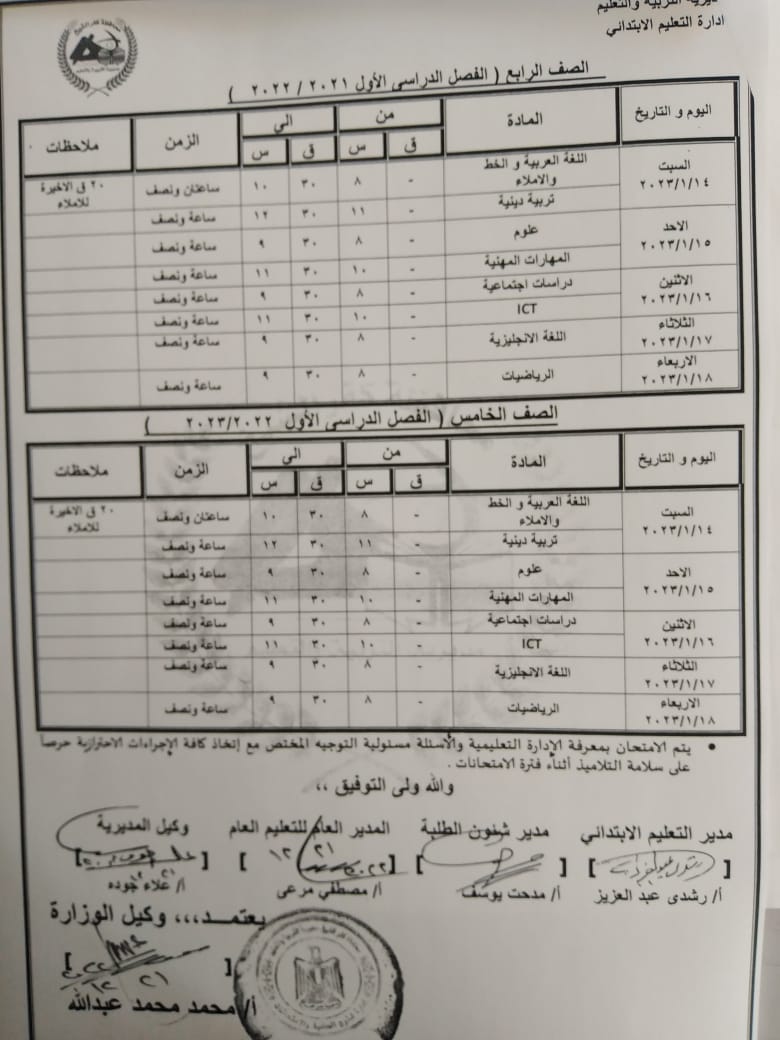 مديرية التربية والتعليم
ادارة التعليم الابتدائي
الصف الرابع ( الفصل الدراسي الأول ٢٠٢١ / ٢٠٢٢ )
اليوم و التاريخ المادة من الي الزمن ملاحظات
ق س ق س
السبت ٢٠٢٣/١/١٤ اللغة العربية و الخط والاملاء - ٨ ٣٠ ١٠ ساعتان ونصف ٢٠ ق الاخيرة للاملاء
تربية دينية - ١١ ٣٠ ١٢ ساعة ونصف
الاحد ٢٠٢٣/١/١٥ علوم - ٨ ٣٠ ٩ ساعة ونصف
المهارات المهنية - ١٠ ٣٠ ١١ ساعة ونصف
الاثنين ٢٠٢٣/١/١٦ دراسات اجتماعية - ٨ ٣٠ ٩ ساعة ونصف
ICT - ١٠ ٣٠ ١١ ساعة ونصف
الثلاثاء ٢٠٢٣/١/١٧ اللغة الانجليزية - ٨ ٣٠ ٩ ساعة ونصف
الاربعاء ٢٠٢٣/١/١٨ الرياضيات - ٨ ٣٠ ٩ ساعة ونصف
الصف الخامس ( الفصل الدراسي الأول ٢٠٢٣/٢٠٢٢ )
اليوم و التاريخ المادة من الي الزمن ملاحظات
ق س ق س
السبت ٢٠٢٣/١/١٤ اللغة العربية و الخط والاملاء - ٨ ٣٠ ١٠ ساعتان ونصف ٢٠ ق الاخيرة للاملاء
تربية دينية - ١١ ٣٠ ١٢ ساعة ونصف
الاحد ٢٠٢٣/١/١٥ علوم - ٨ ٣٠ ٩ ساعة ونصف
المهارات المهنية - ١٠ ٣٠ ١١ ساعة ونصف
الاثنين ٢٠٢٣/١/١٦ دراسات اجتماعية - ٨ ٣٠ ٩ ساعة ونصف
ICT - ١٠ ٣٠ ١١ ساعة ونصف
الثلاثاء ٢٠٢٣/١/١٧ اللغة الانجليزية - ٨ ٣٠ ٩ ساعة ونصف
الاربعاء ٢٠٢٣/١/١٨ الرياضيات - ٨ ٣٠ ٩ ساعة ونصف
• يتم الامتحان بمعرفة الإدارة التعليمية والأسئلة مسئولية التوجيه المختص مع إتخاذ كافة الإجراءات الاحترازية حرصاً
على سلامة التلاميذ أثناء فترة الامتحانات .
والله ولى التوفيق ،،
مدير التعليم الابتدائي مدير شئون الطلبة المدير العام للتعليم العام وكيل المديرية
[ ] [ ] [ ٢٠٢٢ ١٢ ٢١ ] [ ]
أ/ رشدى عبد العزيز أ/ مدحت يوسف أ/ مصطفي مرعى أ/ علاء جوده
يعتمد،،، وكيل الوزارة
[ ٢٠٢٢ ١٢ ٢١ ]
أ/ محمد محمد عبدالله